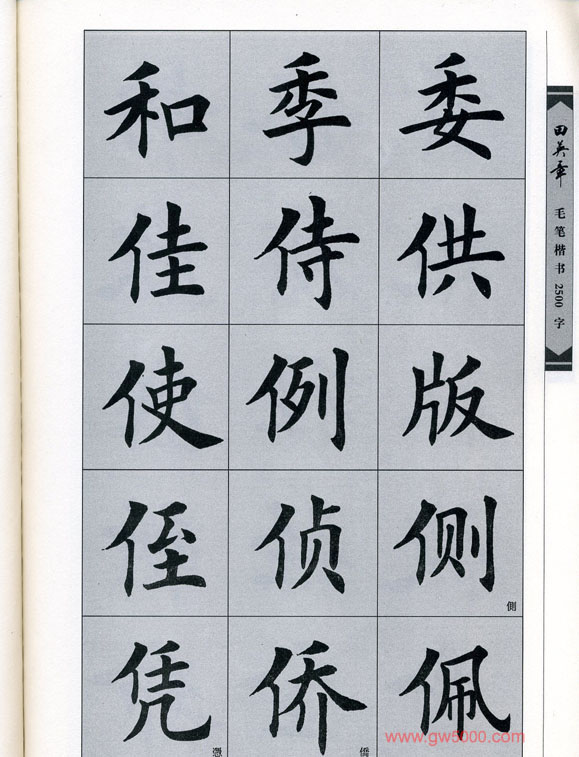 和 季 委
佳 侍 供
使 例 版
侄 侦 侧
側
凭 侨 佩
憑 僑
田英章
毛笔楷书2500字
www.gw8000.com